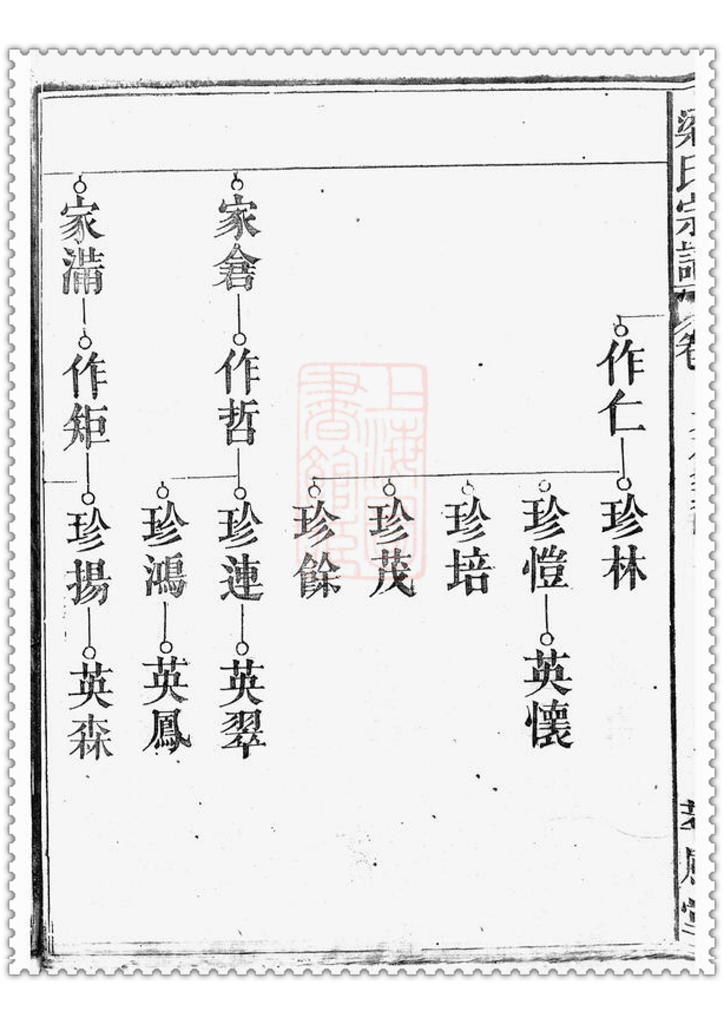 梁氏宗譜
卷
作仁
珍林
珍愷
英懷
珍培
珍茂
珍餘
家倉
作哲
珍連
英翠
珍鴻
英鳳
家滿
作矩
珍揚
英森
上海圖
書館藏